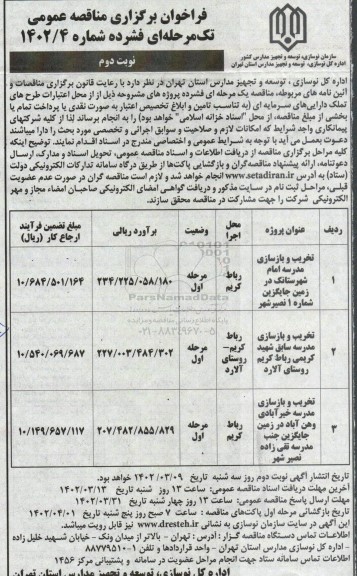 فراخوان برگزاری مناقصه عمومی
تک‌مرحله‌ای فشرده شماره ۱۴۰۲/۴
نوبت دوم
سازمان نوسازی، توسعه و تجهیز مدارس کشور
اداره کل نوسازی، توسعه و تجهیز مدارس استان تهران
اداره کل نوسازی ، توسعه و تجهیز مدارس استان تهران در نظر دارد با رعایت قانون برگزاری مناقصات و
آئین نامه های مربوطه، مناقصه یک مرحله ای فشرده پروژه های مشروحه ذیل از از محل اعتبارات طرح های
تملک دارایی‌های سرمایه ای (به تناسب تامین و ابلاغ تخصیص اعتبار به صورت نقدی یا پرداخت تمام یا
بخشی از مبلغ مناقصه، از محل "اسناد خزانه اسلامی" خواهد بود) را به انجام برساند لذا از کلیه شرکتهای
پیمانکاری واجد شرایط که امکانات لازم و صلاحیت و سوابق اجرائی و تخصصی مورد بحث را دارا میباشند
دعوت بعمل می آید با توجه به شرایط عمومی و اختصاصی مندرج در اسناد اقدام نمایند. توضیح اینکه
کلیه مراحل برگزاری مناقصه از دریافت اطلاعات و اسناد مناقصه عمومی، تحویل اسناد و مدارک، ارسال
دعوتنامه، ارائه پیشنهاد مناقصه‌گران و بازگشایی پاکت‌ها از طریق درگاه سامانه تدارکات الکترونیکی دولت
(ستاد) به آدرس www.setadiran.ir انجام خواهد شد و لازم است مناقصه گران در صورت عدم عضویت
قبلی، مراحل ثبت نام در سایت مذکور و دریافت گواهی امضای الکترونیکی صاحبان امضاء مجاز و مهر
شرکت الکترونیکی را جهت مشارکت در مناقصه محقق سازند.
ردیف عنوان پروژه محل اجرا وضعیت برآورد ریالی مبلغ تضمین فرآیند ارجاع کار (ریال)
۱ تخریب و بازسازی مدرسه امام شهرستانک در زمین جایگزین شماره ۱ نصیرشهر رباط کریم مرحله اول ۲۳۴/۲۲۵/۰۵۸/۱۸۰ ۱۰/۶۸۴/۵۰۱/۱۶۴
۲ تخریب و بازسازی مدرسه سابق شهید کریمی رباط کریم روستای آلارد رباط کریم– روستای آلارد مرحله اول ۲۲۷/۰۰۳/۴۸۴/۳۰۲ ۱۰/۵۴۰/۰۶۹/۶۸۷
۳ تخریب و بازسازی مدرسه خیرآبادی وهن آباد در زمین جایگزین جنب مدرسه نقی زاده نصیر شهر رباط کریم مرحله اول ۲۰۷/۴۸۲/۸۵۵/۸۲۹ ۱۰/۱۴۹/۶۵۷/۱۱۷
ParsNamadData
۰۲۱-۸۸۳۴۹۶۷۰-۵
تاریخ انتشار آگهی نوبت دوم روز سه شنبه تاریخ ۱۴۰۲/۰۳/۰۹ خواهد بود.
آخرین مهلت دریافت اسناد مناقصه عمومی: ساعت ۱۳ روز شنبه تاریخ ۱۴۰۲/۰۳/۱۳
مهلت ارسال پاسخ مناقصه عمومی: ساعت ۱۳ روز چهار شنبه تاریخ ۱۴۰۲/۰۳/۳۱
تاریخ بازگشائی مرحله اول پاکت‌های مناقصه : ساعت ۷ صبح روز پنج شنبه تاریخ ۱۴۰۲/۰۴/۰۱
این آگهی در سایت سازمان نوسازی به نشانی www.dresteh.ir نیز قابل رویت میباشد.
اطلاعات تماس دستگاه مناقصه گزار : آدرس : تهران - بالاتر از میدان ونک - خیابان شهید خلیل زاده
- اداره کل نوسازی مدارس استان تهران - واحد قراردادها و تلفن ۱-۸۸۷۷۹۵۱۰
اطلاعات تماس سامانه ستاد جهت انجام مراحل عضویت در سامانه و پشتیبانی مرکز ۱۴۵۶
اداره کل نوسازی، توسعه و تجهیز مدارس استان تهران